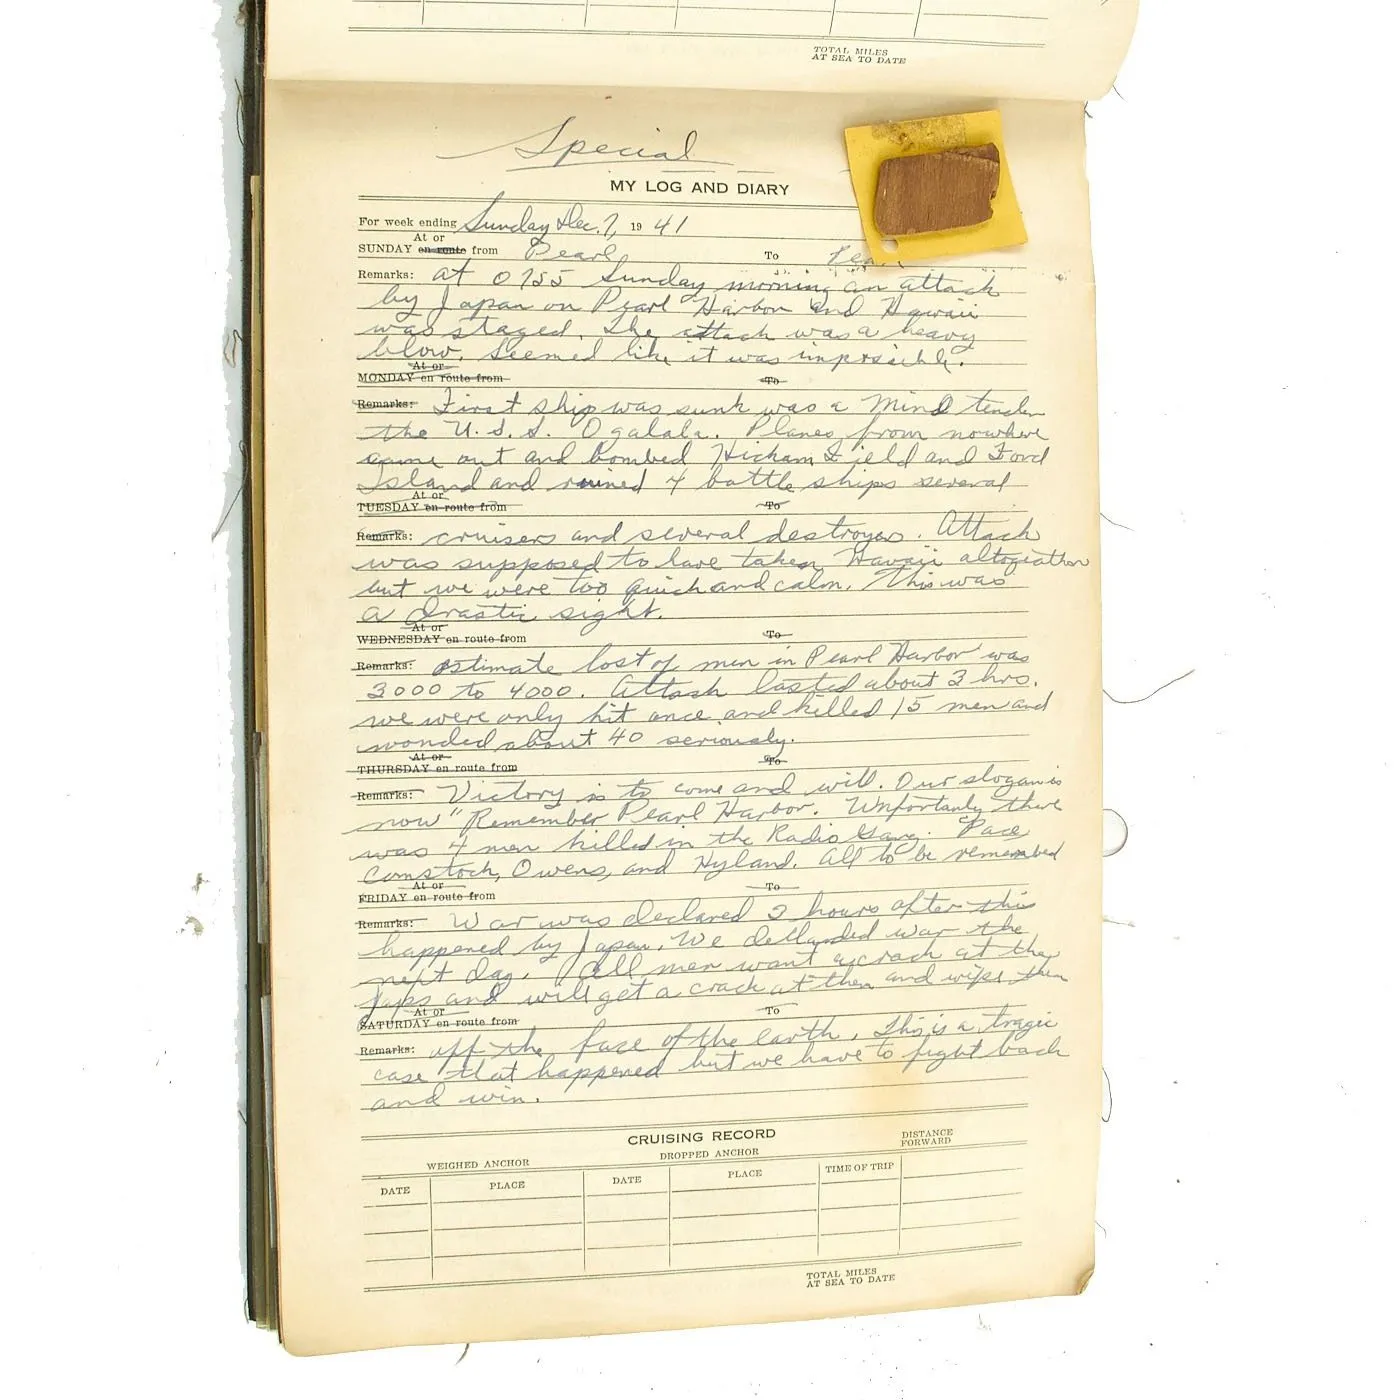 TOTAL MILES
AT SEA TO DATE
Special
MY LOG AND DIARY
For week ending Sunday Dec. 7, 19 41
At or
SUNDAY en route from Pearl To Pearl
Remarks: at 0755 Sunday morning an attack
by Japan on Pearl Harbor and Hawaii
was staged. The attack was a heavy
blow. Seemed like it was impossible.
At or
MONDAY en route from To
Remarks: First ship was sunk was a Mind tender
the U.S.S. Ogalala. Planes from nowhere
came out and bombed Hickam Field and Ford
Island and ruined 4 battle ships several
At or
TUESDAY en route from To
Remarks: cruisers and several destroyers. Attack
was supposed to have taken Hawaii
but we were too quick and calm. This was
a drastic sight.
At or
WEDNESDAY en route from To
Remarks: estimate lost of men in Pearl Harbor was
3000 to 4000. Attack lasted about 3 hrs.
we were only hit once and killed 15 men and
wonded about 40 seriously.
At or
THURSDAY en route from To
Remarks: Victory is to come and will. Our slogan is
now "Remember Pearl Harbor. Unfortanly there
was 4 men killed in the Radio Gang. Pace
Comstock, Owens, and Hyland. All to be remembed
At or
FRIDAY en route from To
Remarks: War was declared 2 hours after this
happened by Japan. We declared war the
next day. All men want a crack at the
Japs and will get a crack at them and wipe them
At or
SATURDAY en route from To
Remarks: off the face of the earth. This is a tragic
case that happened but we have to fight back
and win.
CRUISING RECORD
DISTANCE
FORWARD
WEIGHED ANCHOR DROPPED ANCHOR
DATE PLACE DATE PLACE TIME OF TRIP
TOTAL MILES
AT SEA TO DATE